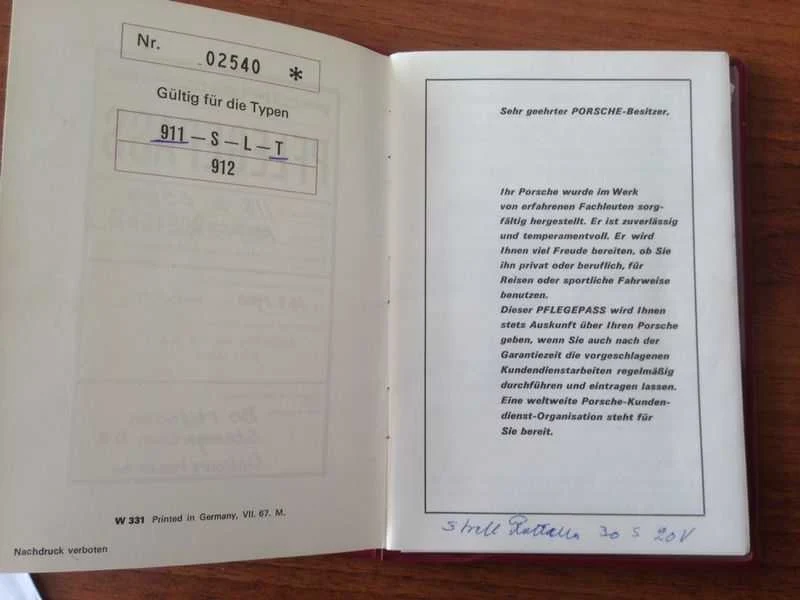 Nr. 02540 *
Gültig für die Typen
911 – S – L – T
912
W 331 Printed in Germany, VII. 67. M.
Nachdruck verboten
Sehr geehrter PORSCHE-Besitzer,
Ihr Porsche wurde im Werk
von erfahrenen Fachleuten sorg-
fältig hergestellt. Er ist zuverlässig
und temperamentvoll. Er wird
Ihnen viel Freude bereiten, ob Sie
ihn privat oder beruflich, für
Reisen oder sportliche Fahrweise
benutzen.
Dieser PFLEGEPASS wird Ihnen
stets Auskunft über Ihren Porsche
geben, wenn Sie auch nach der
Garantiezeit die vorgeschlagenen
Kundendienstarbeiten regelmäßig
durchführen und eintragen lassen.
Eine weltweite Porsche-Kunden-
dienst-Organisation steht für
Sie bereit.
30 S 20V